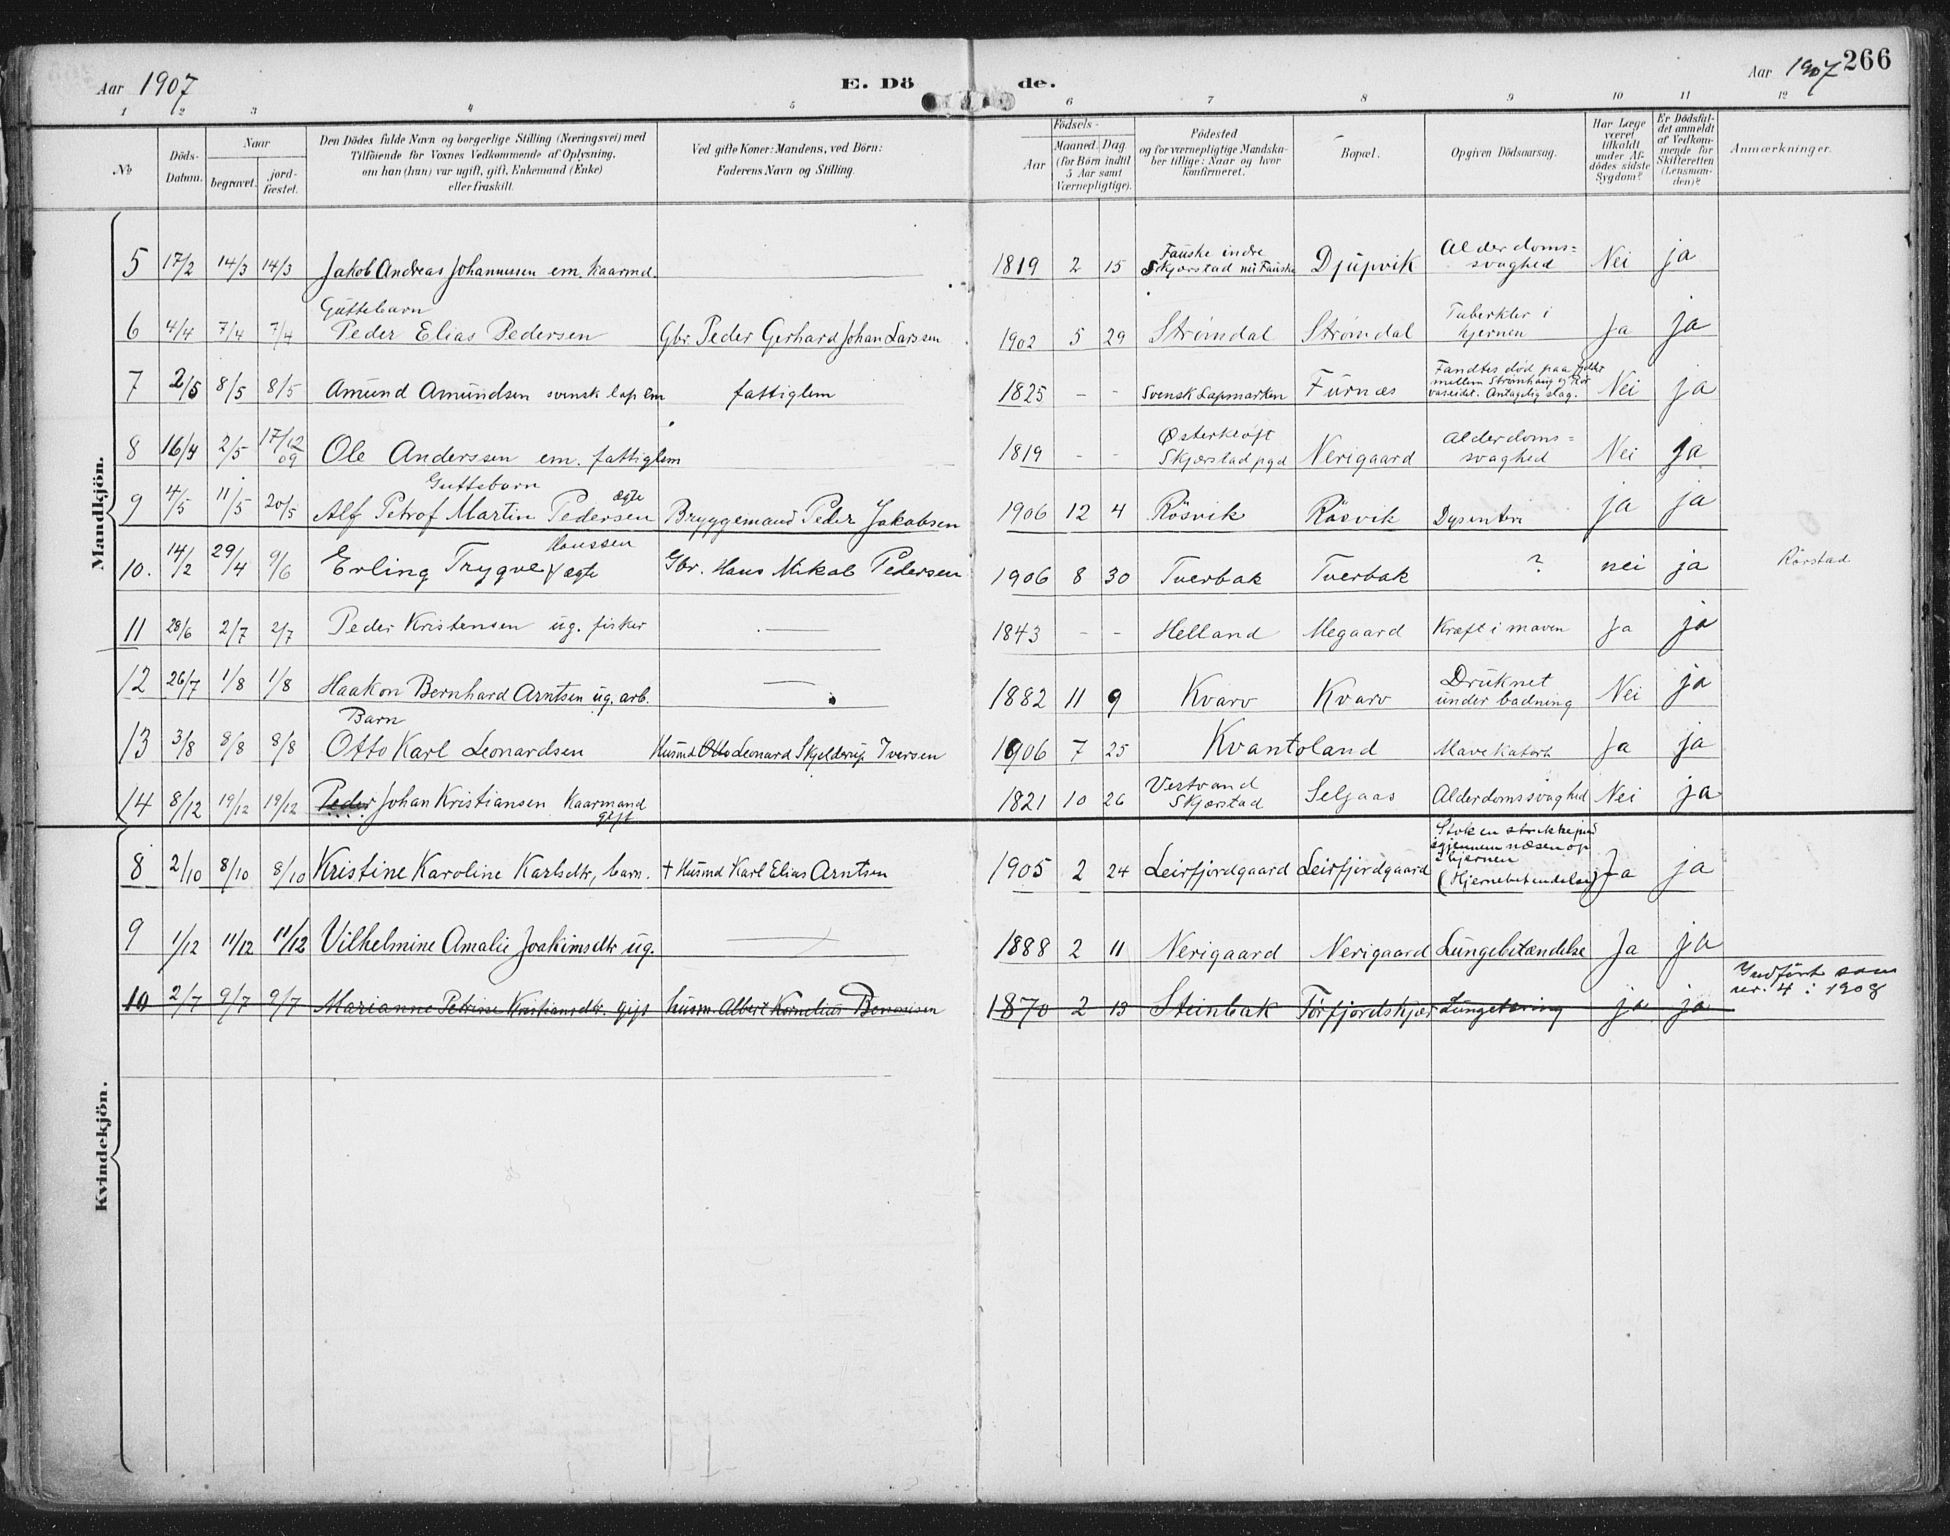 Aar 1907 E. Dö de. Aar 1907 266
1 2 3 4 5 6 7 8 9 10 11 12
No Döds-Datum. Naar begravet. jord-fæstet. Den Dödes fulde Navn og borgerlige Stilling (Næringsvei) med Tilföiende for Voxnes Vedkommende af Oplysning, om han (hun) var ugift, gift, Enkemand (Enke) eller fraskilt. Ved gifte Koner: Mandens, ved Börn: Faderens Navn og Stilling. Födsels- Aar Maaned. Dag (for Börn indtil 5 Aar samt Værnepligtige). Födested og for værnepligtige Mandska-ber tillige: Naar og hvor konfirmeret. Bopæl. Opgiven Dödsaarsag. Har Læge været tilkaldt under Af-dödes sidste Sygdom? Er Dödsfal-det anmeldt af Vedkom-mende for Skifteretten (Lensman-den)? Anmærkninger.
Mandkjön.
5 17/2 14/3 14/3 Jakob Andreas Johannessen em. kaarmd 1819 2 15 Fauske indre Skjerstad nu Fauske Djupvik Alderdoms=svaghed Nei ja
6 4/4 7/4 7/4 Guttebarn Peder Elias Pedersen Gbr Peder Gerhard Johan Larssen 1902 5 29 Strømdal Strømdal Tuberkler i hjernen Ja ja
7 2/5 8/5 8/5 Amund Amundsen svensk lap em fattiglem 1825 - - Svensk Lapmarken Furnæs Fandtes död paa fjeldet mellem Strømhaug og Kor vaseidet. Antagelig slag. Nei ja
8 16/4 2/5 17/12 09 Ole Anderssen em. fattiglem 1819 - - Østerkløft Skjerstad pgd Nerigaard Alderdoms=svaghed Nei ja
9 4/5 11/5 20/5 Guttebarn Alf Petrof Martin Pedersen ægte Bryggemand Peder Jakobsen 1906 12 4 Rösvik Rösvik Dysenteri ja ja
10. 14/2 29/4 9/6 Erling Trygve Hanssen ægte Gbr. Hans Mikal Pedersen 1906 8 30 Tverbak Tverbak ? nei ja Rörstad
11 28/6 2/7 2/7 Peder Kristensen ug. fisker 1843 - - Helland Megaard Kræft i maven Ja ja
12 26/7 1/8 1/8 Haakon Bernhard Arntsen ug. arb. 1882 11 9 Kvarv Kvarv Druknet under badning Nei ja
13 3/8 8/8 8/8 Barn Otto Karl Leonardsen Husmd Otto Leonard Skjelderup Iversen 1906 7 25 Kvantoland Mavekatarh Ja ja
14 8/12 19/12 19/12 Peder Johan Kristiansen Kaarmand gift 1821 10 26 Vestvand Skjerstad Seljaas Alderdomssvaghed Nei ja
Kvindekjön.
8 2/10 8/10 8/10 Kristine Karoline Karlsdtr, barn. + Husmd Karl Elias Arntsen 1905 2 24 Leirfjordgaard Leirfjordgaard Stak en strikkepind igjennem næsen op i hjernen (Hjernebetændelse) Ja ja
9 1/12 11/12 11/12 Vilhelmine Amalie Joakimsdtr ug. 1888 2 11 Nerigaard Nerigaard Lungebetændelse Ja ja
10 2/7 9/7 9/7 Marianne Petrine Kristiansdtr. gift husm. Albert Kornelius 1870 2 13 Steinbak Lungetæring ja ja Indført som nr. 4 i 1908